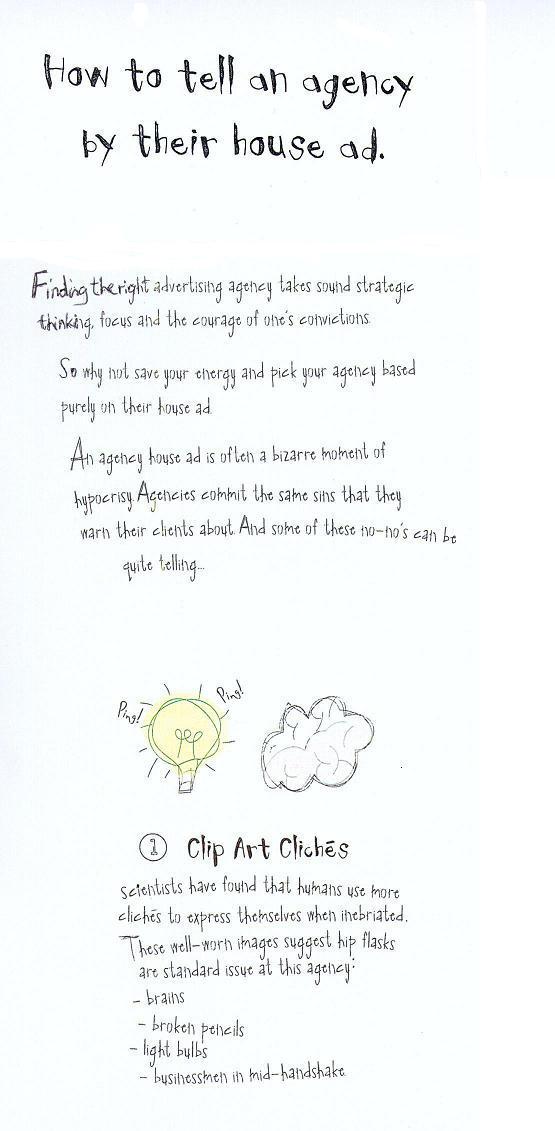 How to tell an agency
by their house ad.
Finding the right advertising agency takes sound strategic
thinking, focus and the courage of one's convictions.
So why not save your energy and pick your agency based
purely on their house ad.
An agency house ad is often a bizarre moment of
hypocrisy. Agencies commit the same sins that they
warn their clients about. And some of these no-no's can be
quite telling...
Ping! Ping!
1 Clip Art Clichēs
Scientists have found that humans use more
clichēs to express themselves when inebriated.
These well-worn images suggest hip flasks
are standard issue at this agency:
- brains
- broken pencils
- light bulbs
- businessmen in mid-handshake